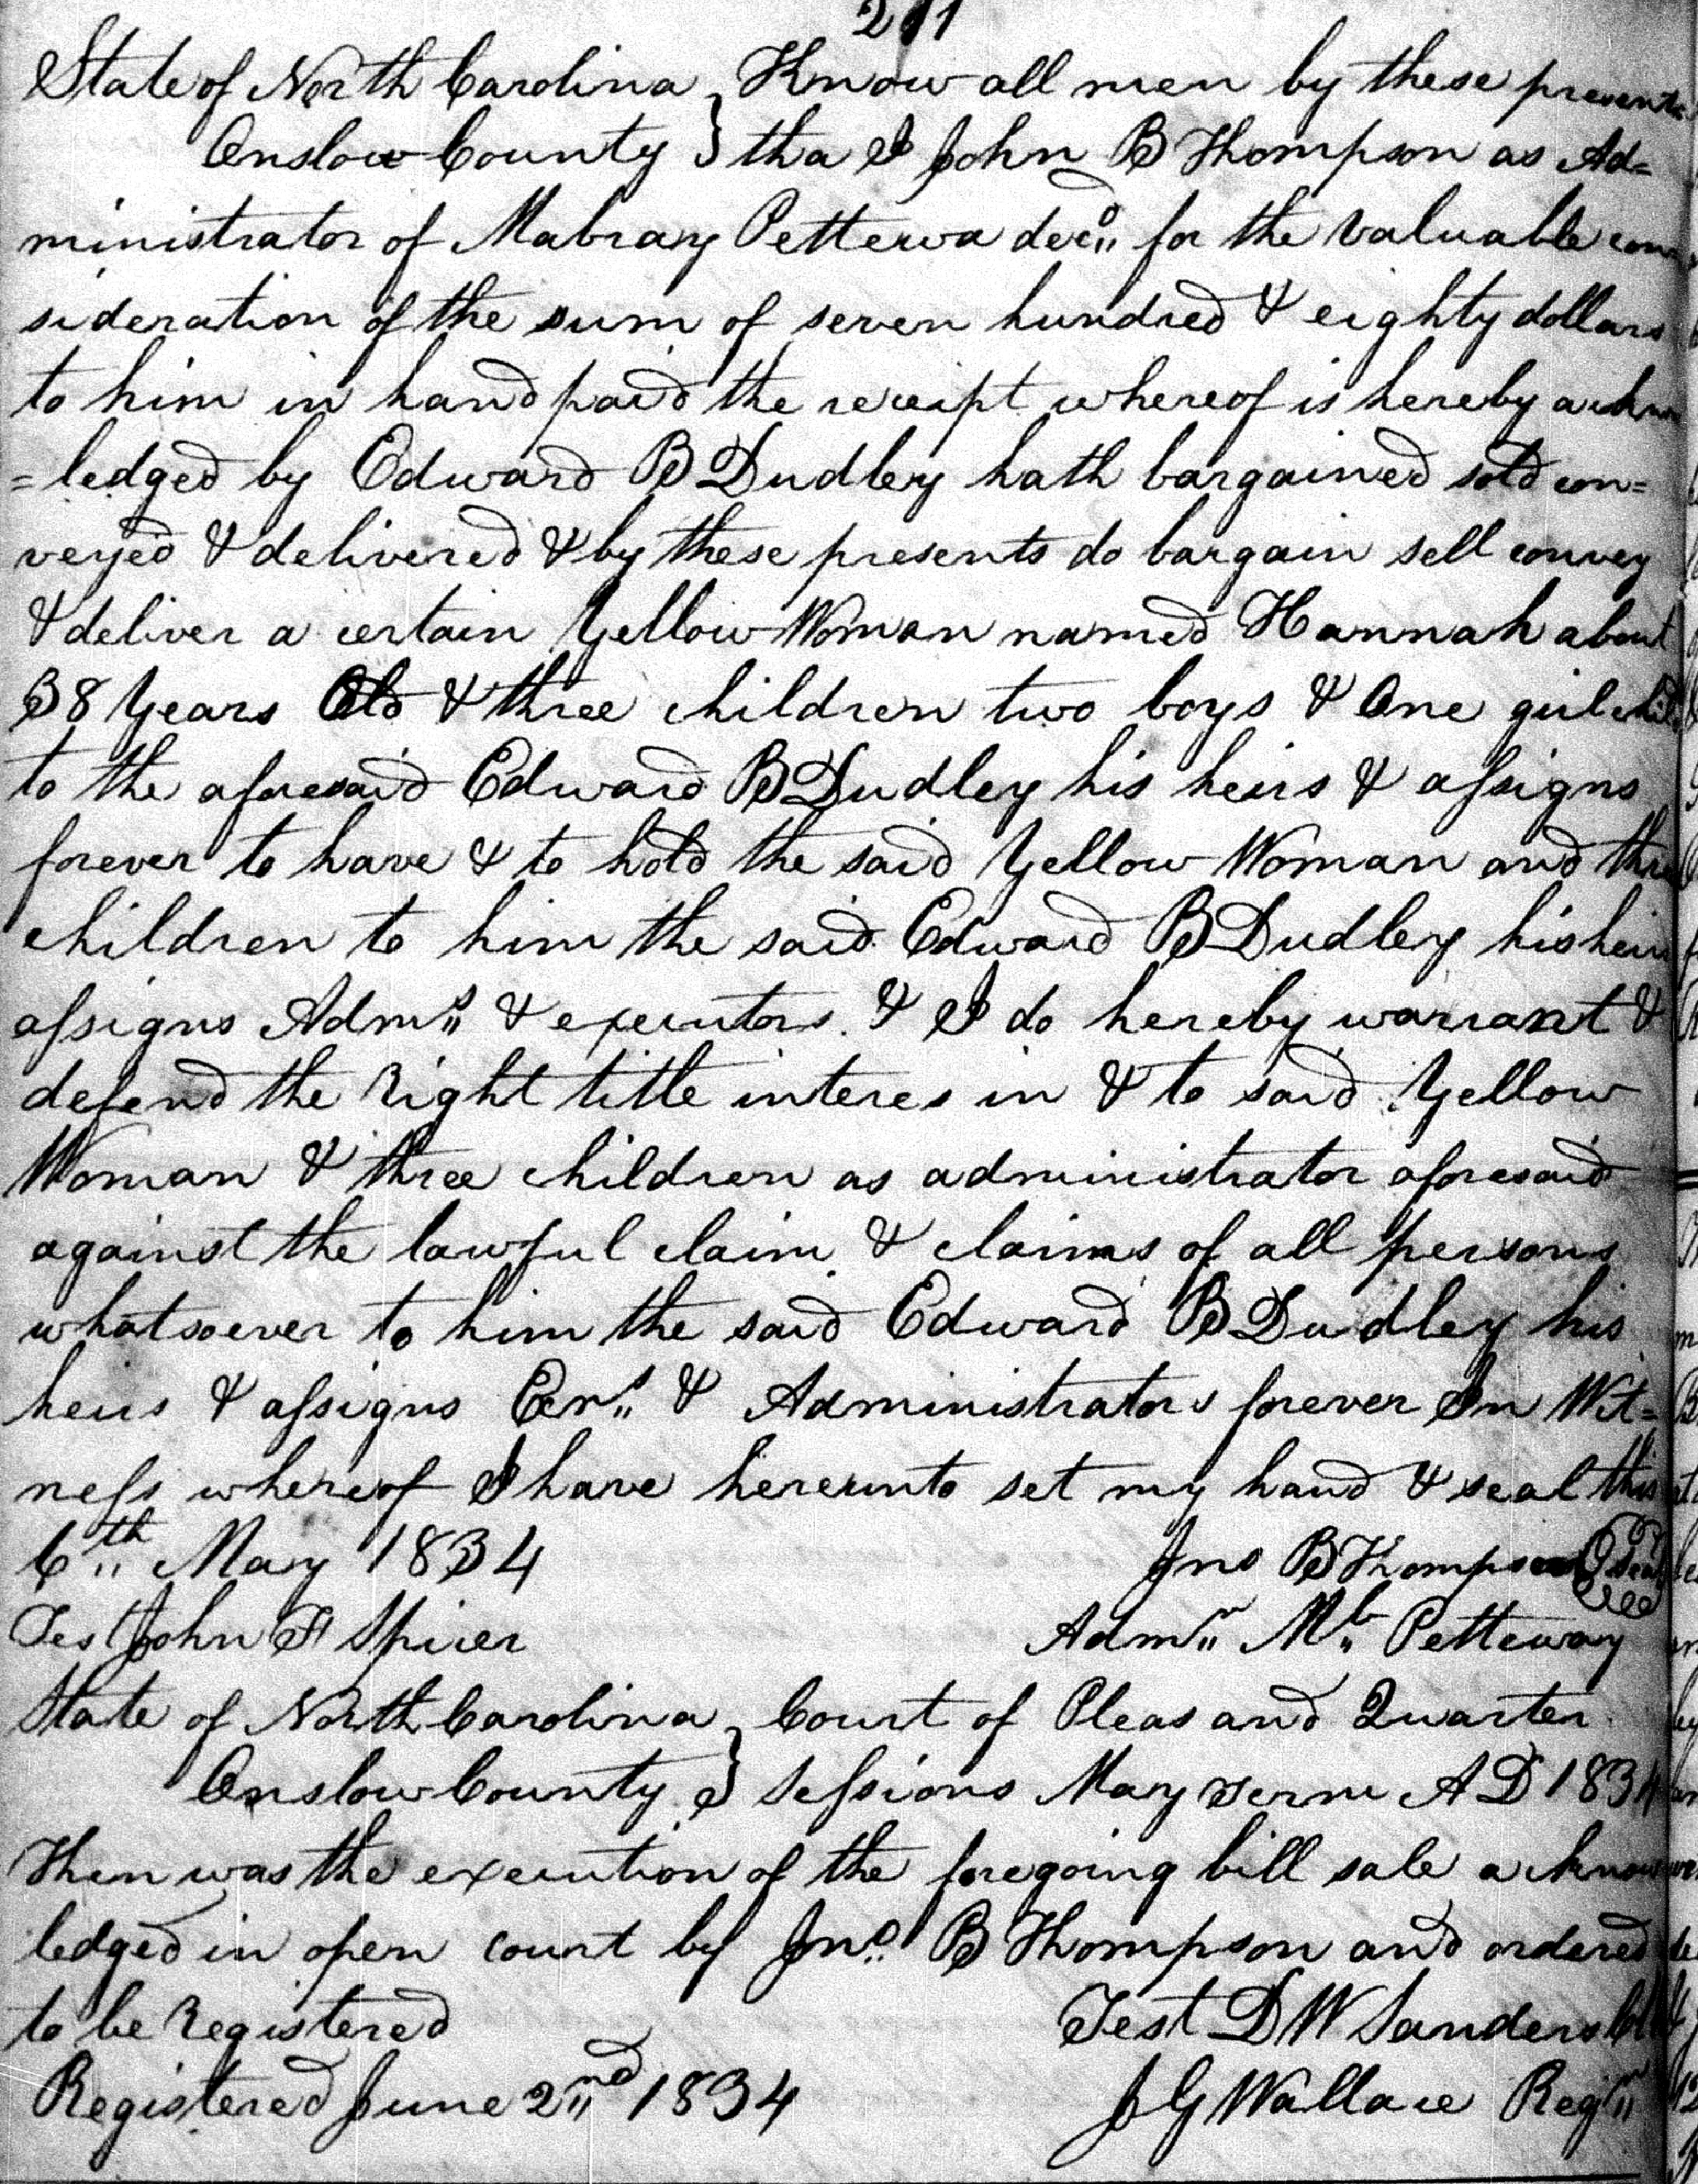 State of North Carolina } Know all men by these presents
Onslow County } tha I John B Thompson as Ad=
ministrator of Mabray Pettewa decd for the valuable con
sideration of the sum of seven hundred & eighty dollars
to him in hand paid the receipt whereof is hereby acknow
=ledged by Edward B Dudley hath bargained sold con=
veyed & delivered & by these presents do bargain sell convey
& deliver a certain Yellow Woman named Hannah about
38 Years Old & three children two boys & One girl child
to the aforesaid Edward B Dudley his heirs & assigns
forever to have & to hold the said Yellow Woman and three
children to him the said Edward B Dudley his heirs
assigns Adm.s & executors. & I do hereby warrant &
defend the Right title interes in & to said Yellow
Woman & three children as administrator aforesaid
against the lawful claim & claims of all persons
whatsoever to him the said Edward B Dudley his
heirs & assigns Exrs & Administrators forever In Wit=
ness whereof I have hereunto set my hand & seal this
6th May 1834 Jno B Thompson seal
Test John F Spicer Admr Mb Petteway
State of North Carolina } Court of Pleas and Quarter
Onslow County } Sessions May Term A D 1834
Then was the execution of the foregoing bill sale acknow
ledged in open court by Jno B Thompson and ordered
to be Registered Test D W Sanders Clk
Registered June 2nd 1834 J G Wallace Regr